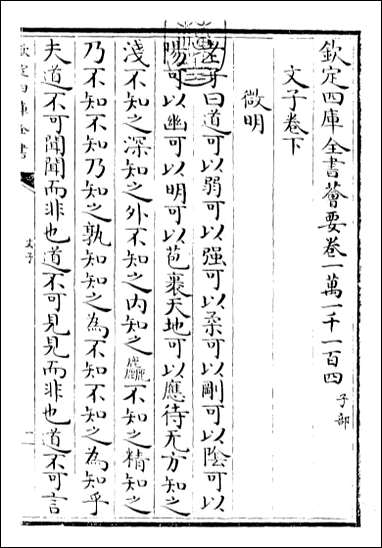 欽定四庫全書薈要卷一萬一千一百四 子部
文子卷下
微明
老子曰道可以弱可以强可以柔可以剛可以陰可以
陽可以幽可以明可以苞裹天地可以應待无方知之
淺不知之深知之外不知之内知之麤不知之精知之
乃不知不知乃知之孰知知之為不知不知之為知乎
夫道不可聞聞而非也道不可見見而非也道不可言
欽定四庫全書
文子
一